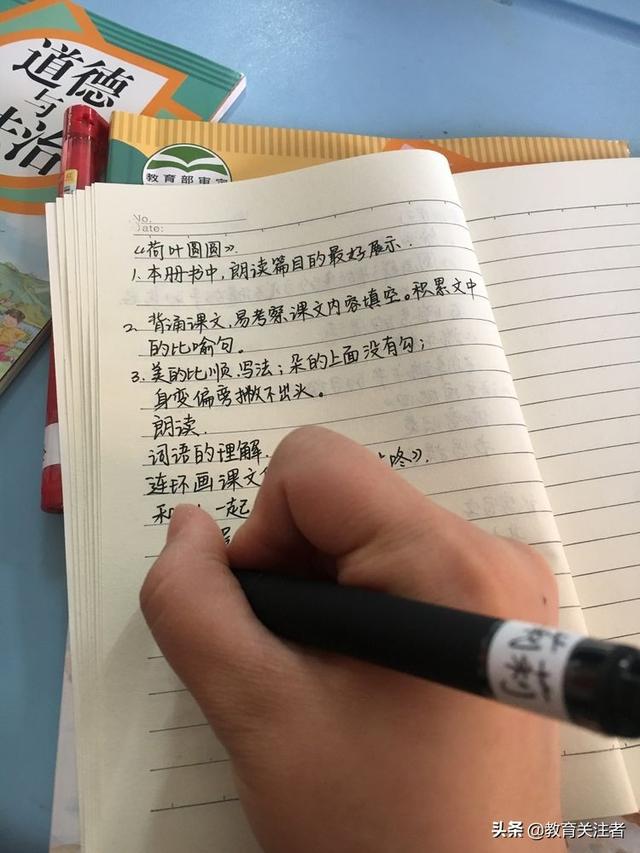 道德
与
法治
教育部审定
No.
Date:
《荷叶圆圆》.
1. 本册书中,朗读篇目的最好展示.
2. 背诵课文,易考察课文内容填空。积累文中
的比喻句。
3. 美的比顺、写法;朵的上面没有勾;
身变偏旁撇不出头。
朗读.
词语的理解.
连环画课文 咚》.
和 一起
头条 @教育关注者